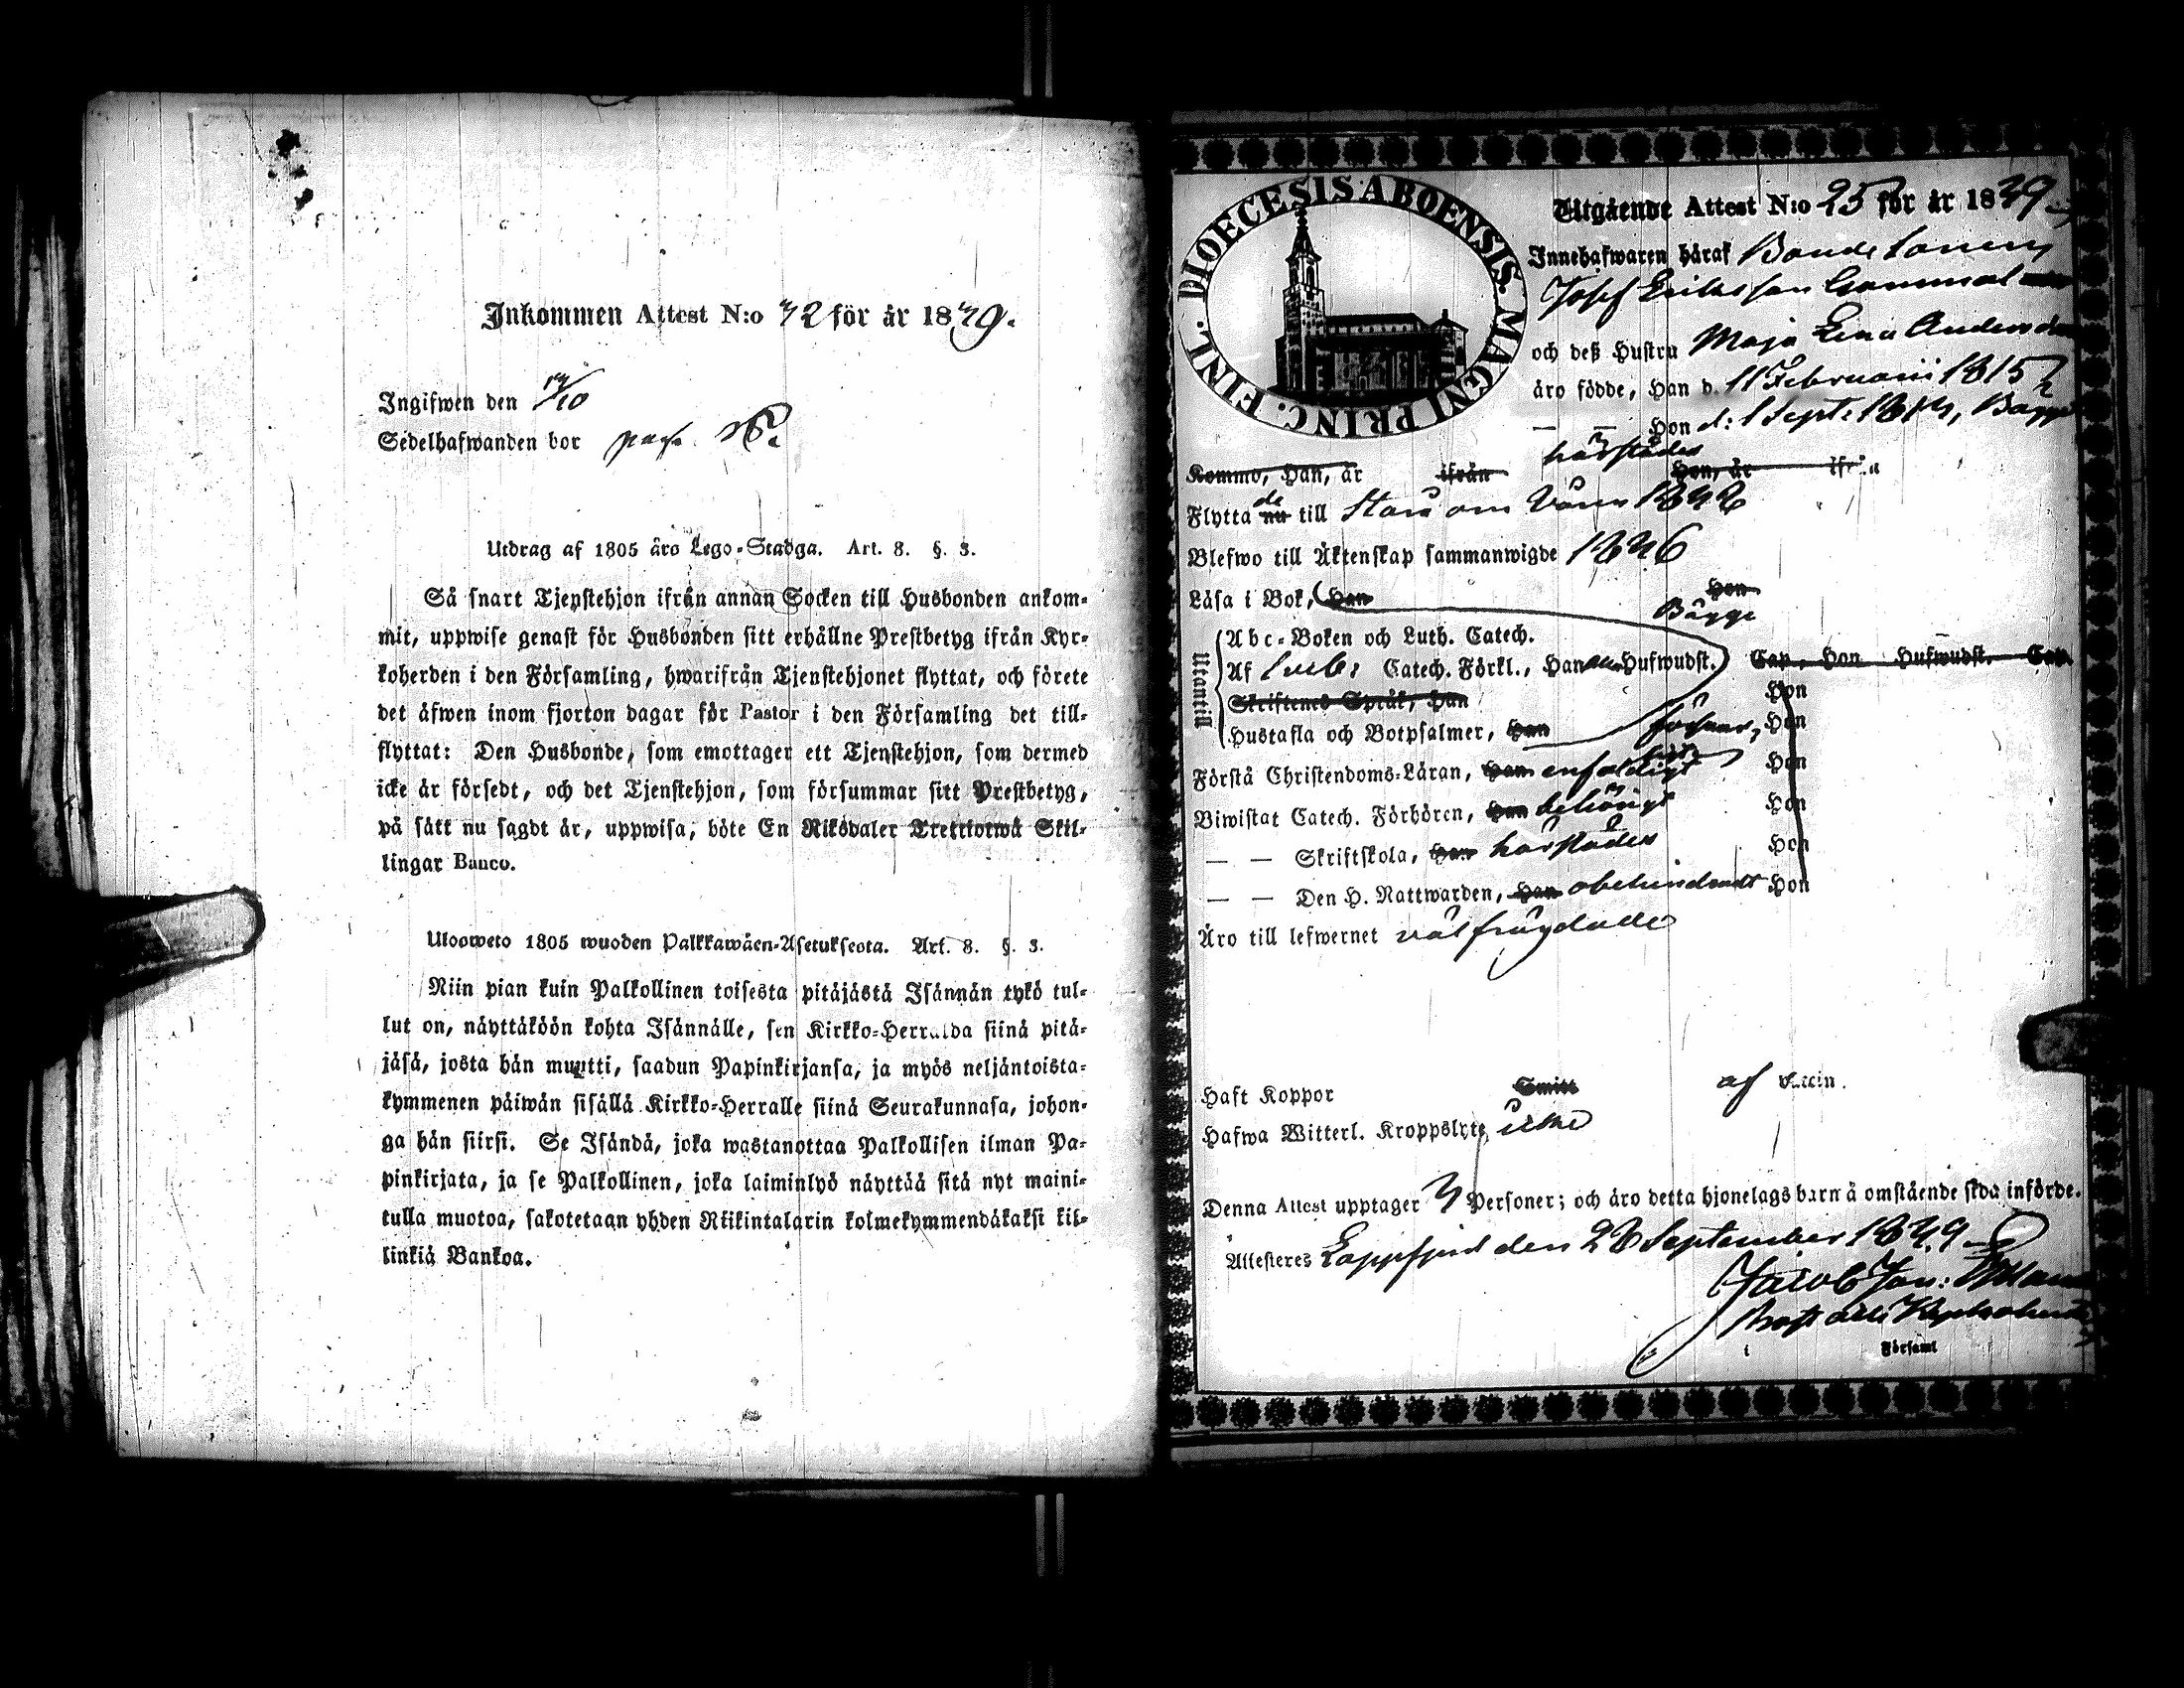 Inkommen Attest N:o 32 för år 1849.
Ingifwen den 13/10
Sedelhafwanden bor pag.
Utdrag af 1805 års Lego-Stadga. Art. 8. §. 3.
Så snart Tjenstehjon ifrån annan Socken till Husbonden ankom-
mit, uppwise genast för Husbonden sitt erhållne Prestbetyg ifrån Kyr-
koherden i den Församling, hwarifrån Tjenstehjonet flyttat, och förete
det äfwen inom fjorton dagar för Pastor i den Församling det till-
flyttat: Den Husbonde, som emottager ett Tjenstehjon, som dermed
icke är försedt, och det Tjenstehjon, som försummar sitt Prestbetyg,
på sätt nu sagdt är, uppwisa, böte En Riksdaler Trettiotwå Skil-
lingar Banco.
Uloswoto 1805 wuoden Palkkawäen-Asetuksesta. Art. 8. §. 3.
Niin pian kuin Palkollinen toisesta pitäjästä Isännän tykö tul-
lut on, näyttäköön kohta Isännälle, sen Kirkko-Herralda siinä pitä-
jäsä, josta hän muutti, saadun Papinkirjansa, ja myös neljäntoista-
kymmenen päiwän sisällä Kirkko-Herralle siinä Seurakunnasa, johon-
ga hän siirsi. Se Isändä, joka wastanottaa Palkollisen ilman Pa-
pinkirjata, ja se Palkollinen, joka laiminlyö näyttää sitä nyt maini-
tulla muotoa, sakotetaan yhden Riikintalarin kolmekymmendäkaksi kil-
linkiä Bankoa.
DIOECESIS ABOENSIS. MAGNI PRINC. FINL.
Utgående Attest N:o 25 för år 1849
Innehafwaren häraf Bondesonen
Josef Eriksson Gammal
och deß Hustru Maja Lena Andersdr
äro födde, Han d. 11 Februarii 1815
— — Hon d: 1 Sept: 1814, Bägge
härstädes
Komme, Han, är ifrån Hon, är ifrån
de
Flytta nu till Storå om Våren 1848
Blefwo till Äktenskap sammanwigde 1846
Läsa i Bok, Han Hon
Bägge
Utantill
Abc-Boken och Luth. Catech.
Af Catech. Förkl., Han Hufwudst. Cap. Hon Hufwudst. Cap.
Skriftenes Språk, Han Hon
Hustafla och Botpsalmer, Han försvar, Hon
Förstå Christendoms-Läran, Han enfaldigt Hon
Biwistat Catech. Förhören, Han behörigt Hon
— — Skriftskola, Han härstädes Hon
— — Den H. Nattwarden, Han obehindradt Hon
Äro till lefwernet välfrägdade
Haft Koppor Smitt af Vaccin.
Hafwa Witterl. Kroppslyte icke
Denna Attest upptager 3 Personer; och äro detta hjonelags barn å omstående sida införde.
Attesteres Lappfjerd den 28 September 1849
Jacob Joh:
i Församl